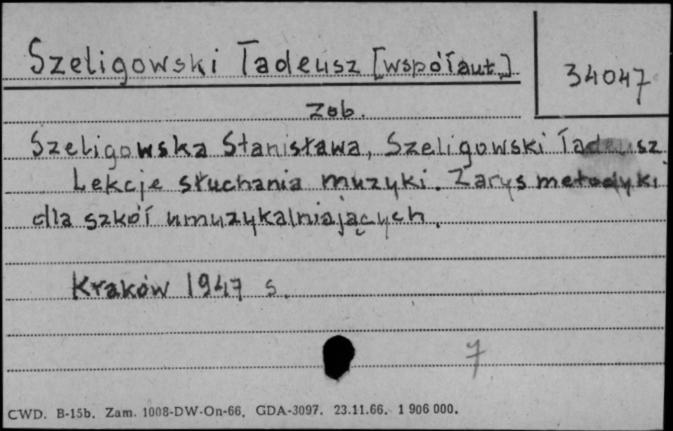 Szeligowski Tadeusz [współaut.]
34047
zob.
Szeligowska Stanisława, Szeligowski Tadeusz
Lekcje słuchania muzyki. Zarys metodyki
dla szkół umuzykalniających.
Kraków 1947 s.
7
CWD. B-15b. Zam. 1008-DW-On-66, GDA-3097. 23.11.66. 1 906 000.